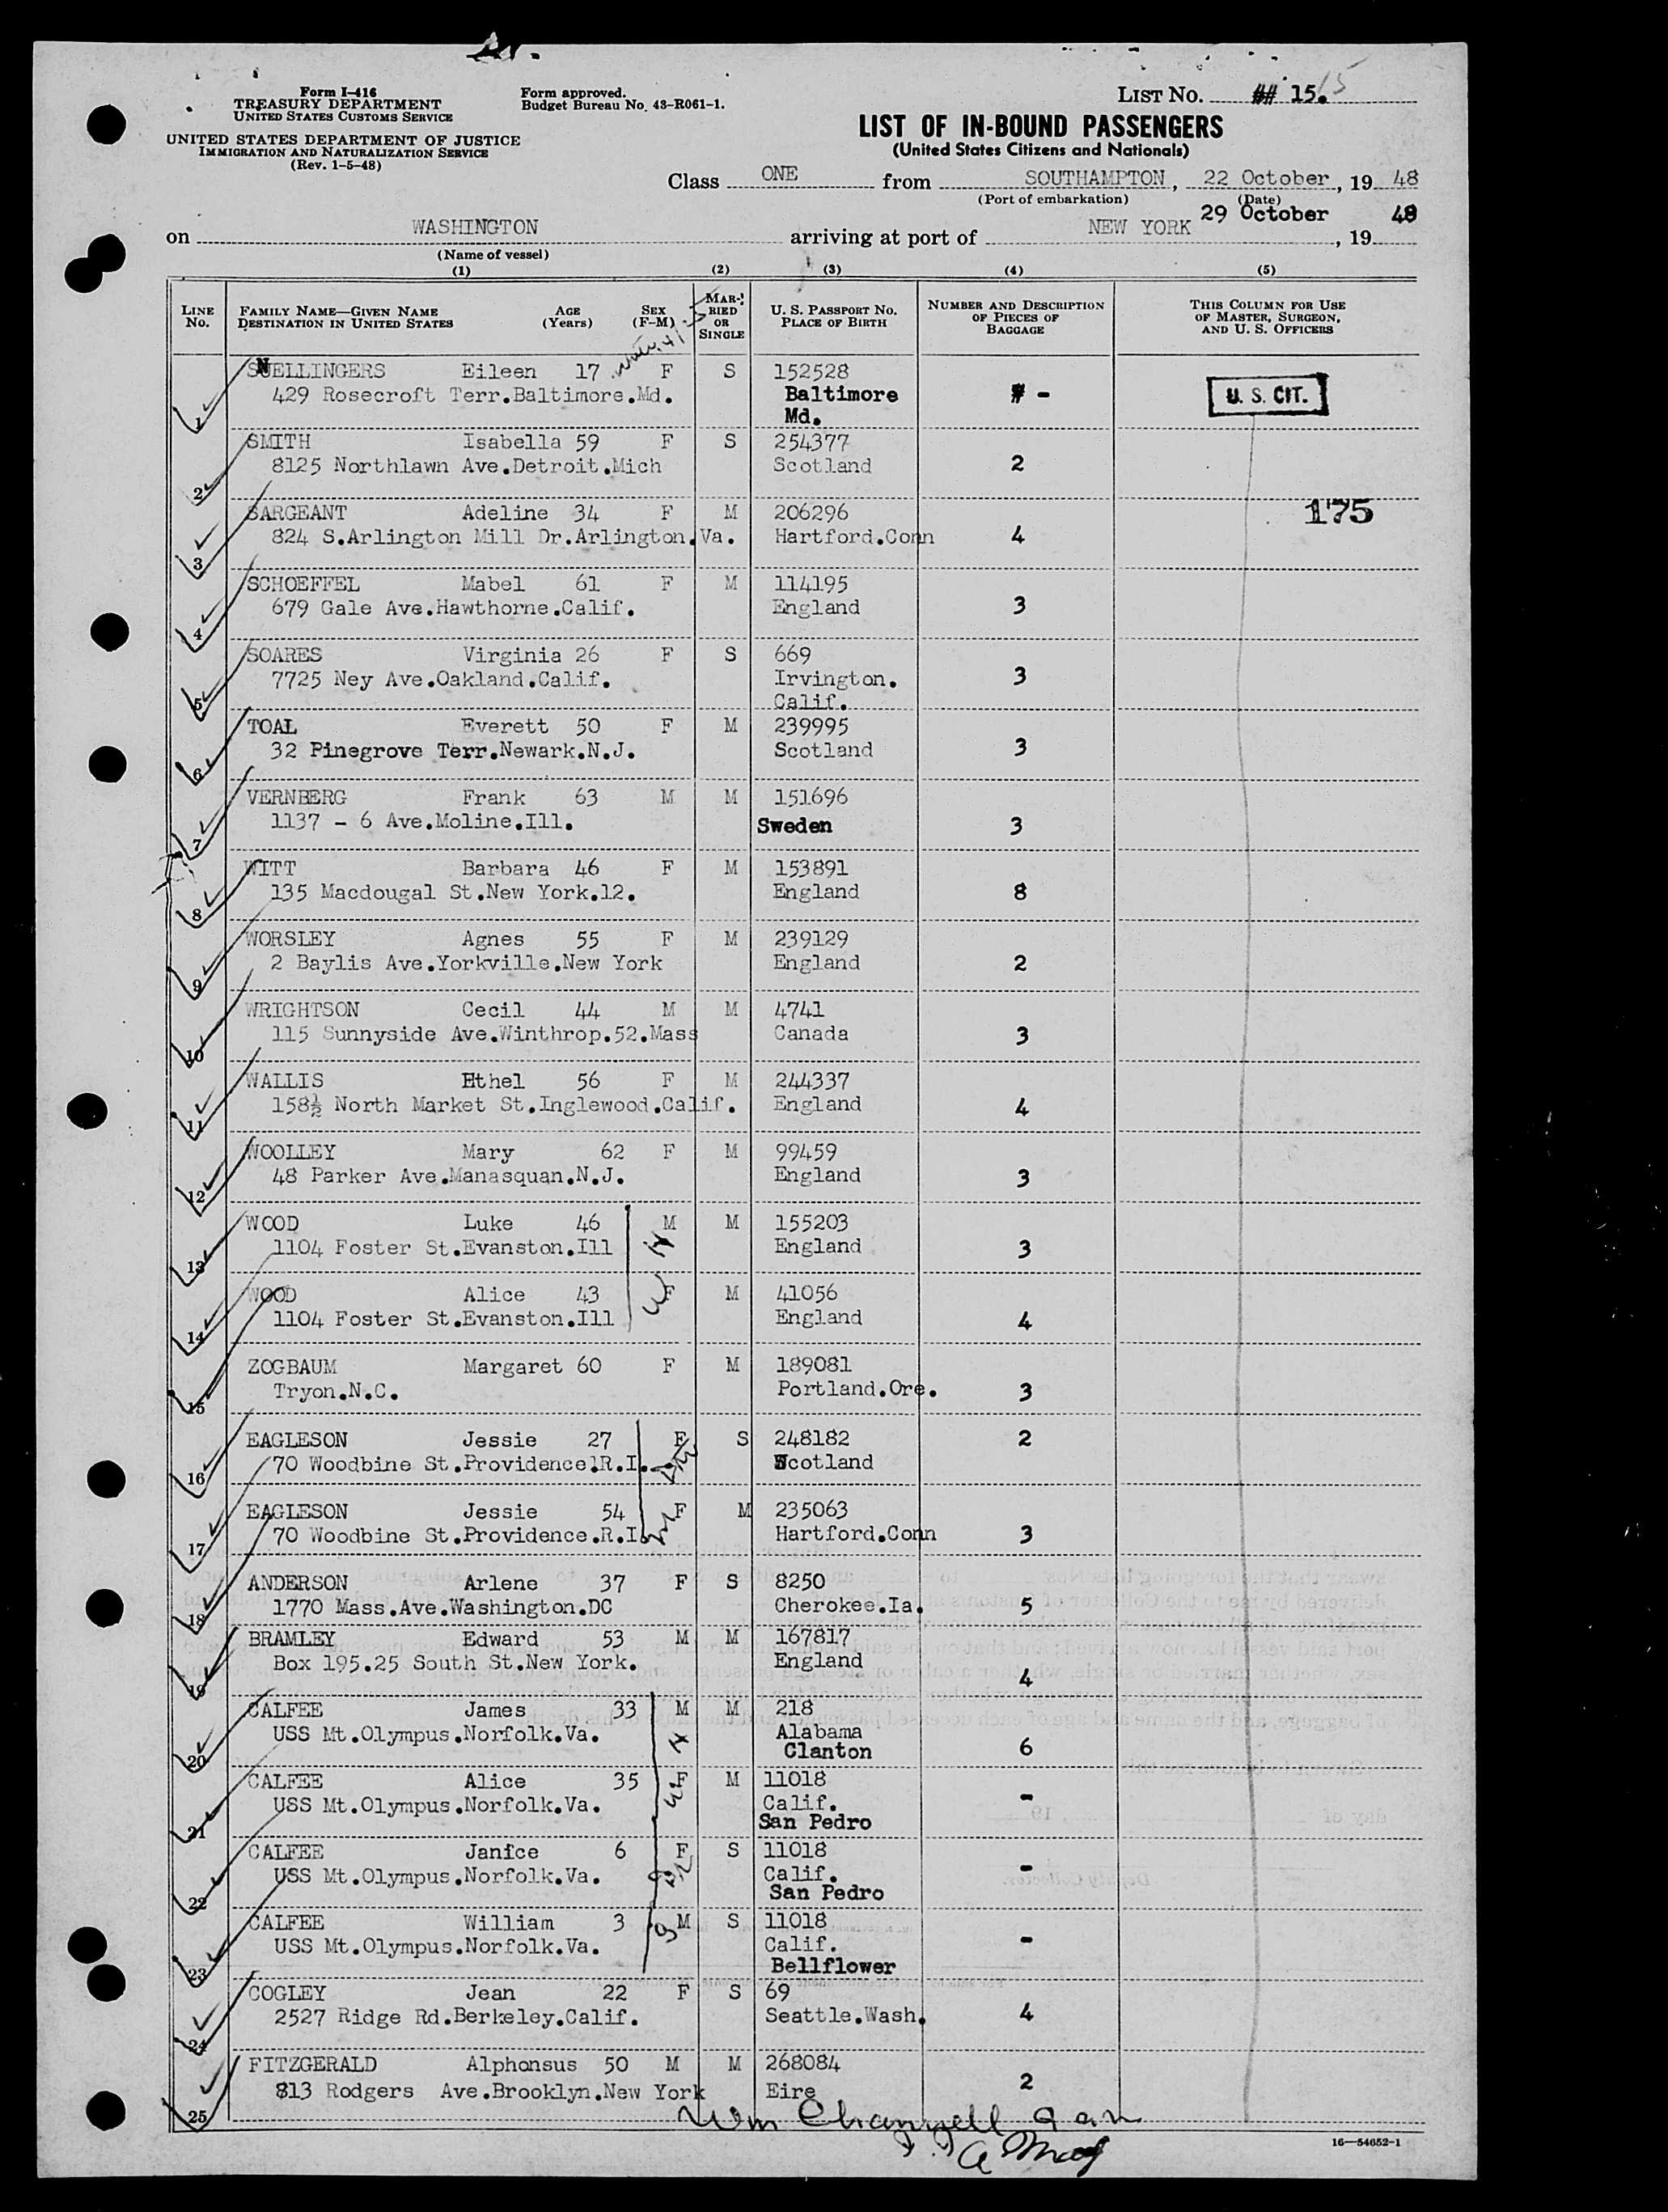 Form I-416
TREASURY DEPARTMENT
UNITED STATES CUSTOMS SERVICE
UNITED STATES DEPARTMENT OF JUSTICE
IMMIGRATION AND NATURALIZATION SERVICE
(Rev. 1-5-48)
Form approved.
Budget Bureau No. 43-R061-1.
LIST No. ## 15. 15
LIST OF IN-BOUND PASSENGERS
(United States Citizens and Nationals)
Class ONE from SOUTHAMPTON, 22 October, 19 48
(Port of embarkation) (Date)
on WASHINGTON arriving at port of NEW YORK 29 October, 19 48
(Name of vessel)
(1) (2) (3) (4) (5)
LINE No. FAMILY NAME—GIVEN NAME DESTINATION IN UNITED STATES AGE (Years) SEX (F-M) MARRIED OR SINGLE U. S. PASSPORT No. PLACE OF BIRTH NUMBER AND DESCRIPTION OF PIECES OF BAGGAGE THIS COLUMN FOR USE OF MASTER, SURGEON, AND U. S. OFFICERS
1 SNELLINGERS Eileen 17 F S 152528
429 Rosecroft Terr.Baltimore.Md. Baltimore Md. # - U. S. CIT.
2 SMITH Isabella 59 F S 254377
8125 Northlawn Ave.Detroit.Mich Scotland 2
175
3 SARGEANT Adeline 34 F M 206296
824 S.Arlington Mill Dr.Arlington.Va. Hartford.Conn 4
4 SCHOEFFEL Mabel 61 F M 114195
679 Gale Ave.Hawthorne.Calif. England 3
5 SOARES Virginia 26 F S 669
7725 Ney Ave.Oakland.Calif. Irvington. Calif. 3
6 TOAL Everett 50 F M 239995
32 Pinegrove Terr.Newark.N.J. Scotland 3
7 VERNBERG Frank 63 M M 151696
1137 - 6 Ave.Moline.Ill. Sweden 3
8 WITT Barbara 46 F M 153891
135 Macdougal St.New York.12. England 8
9 WORSLEY Agnes 55 F M 239129
2 Baylis Ave.Yorkville.New York England 2
10 WRIGHTSON Cecil 44 M M 4741
115 Sunnyside Ave.Winthrop.52.Mass Canada 3
11 WALLIS Ethel 56 F M 244337
158½ North Market St.Inglewood.Calif. England 4
12 WOOLLEY Mary 62 F M 99459
48 Parker Ave.Manasquan.N.J. England 3
13 WOOD Luke 46 M M 155203
1104 Foster St.Evanston.Ill H England 3
14 WOOD Alice 43 F M 41056
1104 Foster St.Evanston.Ill W England 4
15 ZOGBAUM Margaret 60 F M 189081
Tryon.N.C. Portland.Ore. 3
16 EAGLESON Jessie 27 F S 248182 2
70 Woodbine St.Providence.R.I. Scotland
17 EAGLESON Jessie 54 F M 235063
70 Woodbine St.Providence.R.I. Hartford.Conn 3
18 ANDERSON Arlene 37 F S 8250
1770 Mass.Ave.Washington.DC Cherokee.Ia. 5
19 BRAMLEY Edward 53 M M 167817
Box 195.25 South St.New York. England 4
20 CALFEE James 33 M M 218
USS Mt.Olympus.Norfolk.Va. H Alabama
Clanton 6
21 CALFEE Alice 35 F M 11018
USS Mt.Olympus.Norfolk.Va. W Calif. -
San Pedro
22 CALFEE Janice 6 F S 11018
USS Mt.Olympus.Norfolk.Va. Calif. -
San Pedro
23 CALFEE William 3 M S 11018
USS Mt.Olympus.Norfolk.Va. Calif. -
Bellflower
24 COGLEY Jean 22 F S 69
2527 Ridge Rd.Berkeley.Calif. Seattle.Wash. 4
25 FITZGERALD Alphonsus 50 M M 268084
813 Rodgers Ave.Brooklyn.New York Eire 2
Wm
16—54652-1